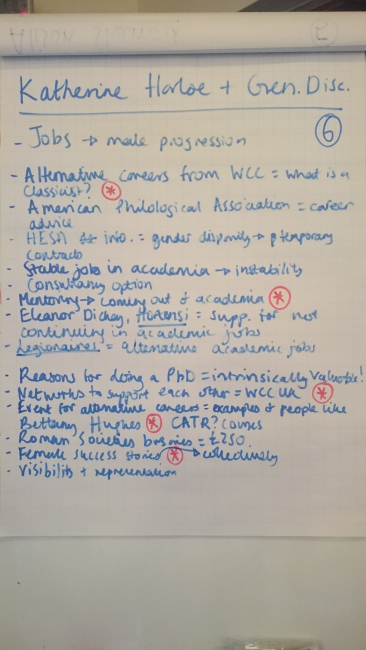 Katherine Harloe + Gen. Disc.
6
- Jobs → male progression
- Alternative careers from WCC = what is a
Classicist? *
- American Philological Association = career
advice
- HESA info. = gender disparity → temporary
contracts
- Stable jobs in academia → instability
Consultancy option
- Mentoring → coming out of academia *
- Eleanor Dickey, = supp. for not
continuing in academic jobs
- Legionaires = alternative academic jobs
- Reasons for doing a PhD = intrinsically valuable!
- Networks to support each other = WCC UK *
- Event for alternative careers = examples of people like
Bettany Hughes * CATR? courses
- Roman Societies bursaries = £250.
- Female success stories * → collectively
- Visibility + representation